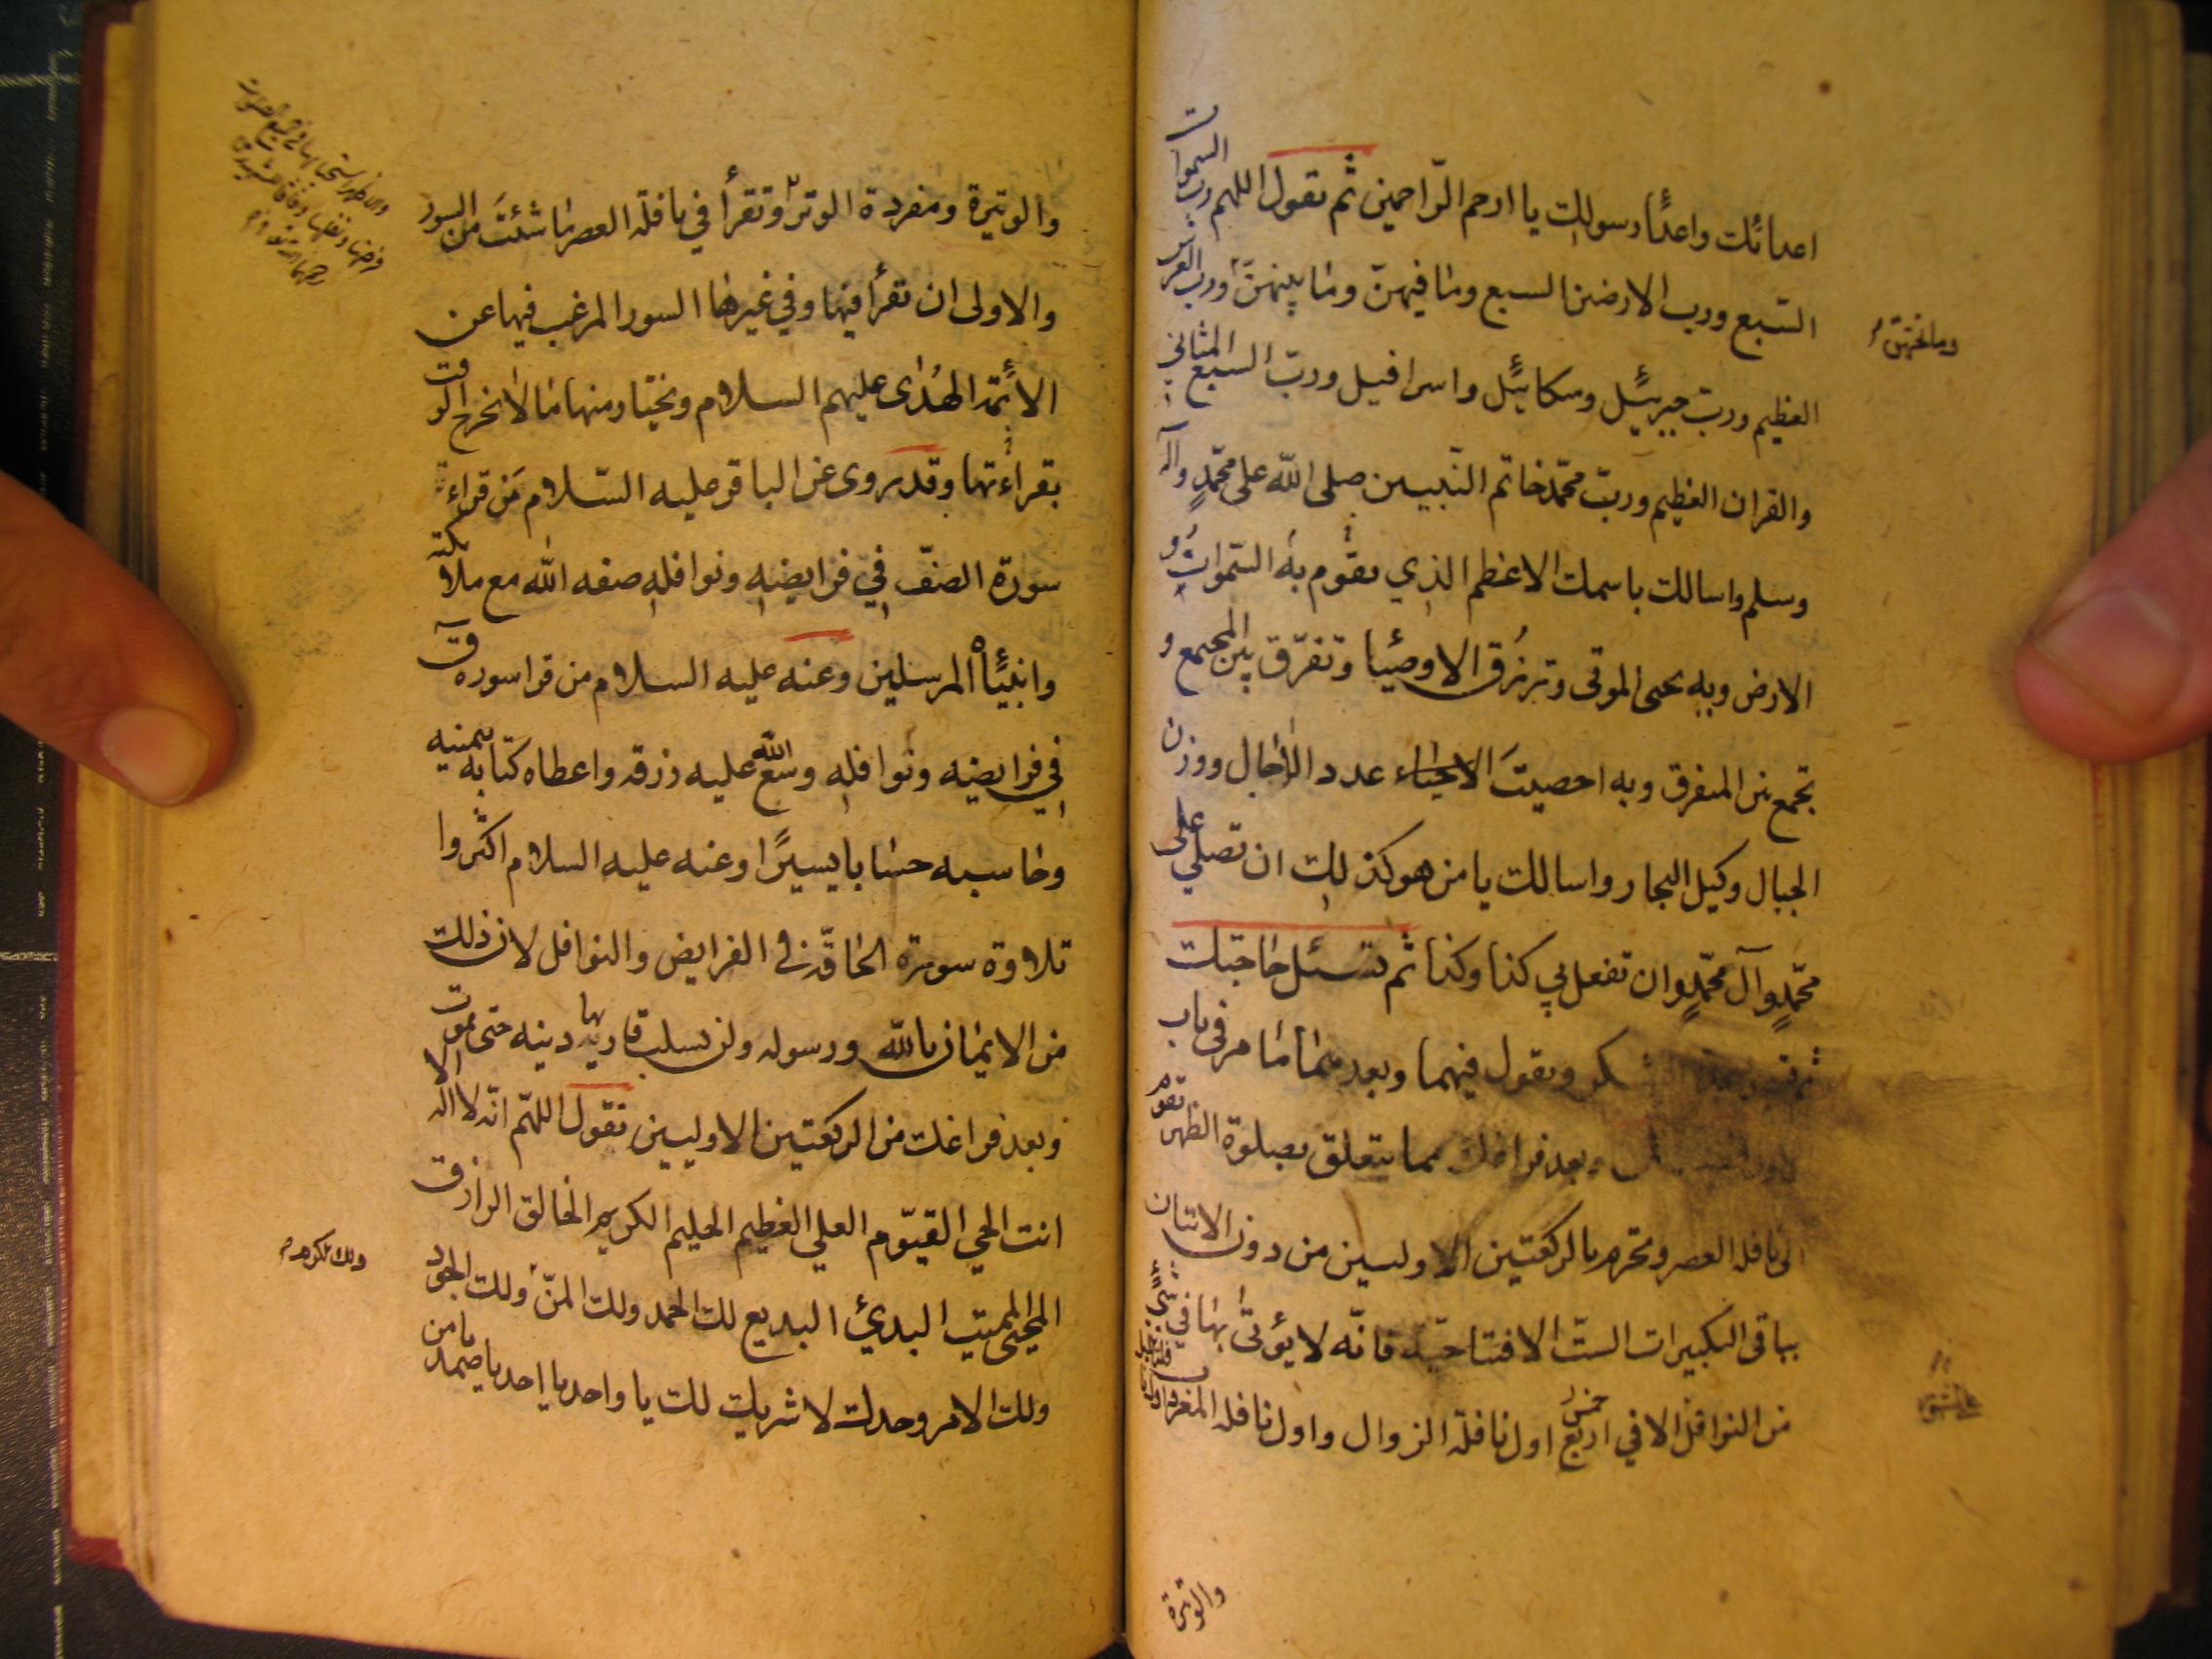 اعدائك واعداء رسولك يا ارحم الرّاحمين ثم تقول اللهم رب السموات
السّبع ورب الارضين السبع وما فيهنّ وما بينهنّ ورب العرش
العظيم وربّ جبرئيل وميكائيل واسرافيل وربّ السبع المثاني
والقران العظيم وربّ محمّد خاتم النّبيين صلى الله على محمّدٍ وآله
وسلم واسالك باسمك الاعظم الذي تقوم به السّموات و
الارض وبه تحيى الموتى وترزُق الاحياء وتفرّق بين المجتمع و
تجمع بين المتفرق وبه احصيتَ عدد الاجال ووزن
الجبال وكيل البحار واسالك يا من هو كذلك ان تصلي على
محمّدٍ وآل محمّدٍ وان تفعل بي كذا وكذا ثم تسئل حاجتك
وتقول فيهما وبعدهما ما مر في باب
وبعد فراغك مما يتعلق بصلوة الظهر تقوم
الى نافلة العصر وتحرم بالركعتين الاوليين من دون الاتيان
بباقى التكبيرات الستّ الافتتاحيّة فانّه لا يؤتى بها في شئ
من النوافل الا في اربع خمس اول نافلة الزوال واول نافلة المغرب
والوتيرة
والوتيرة ومفردة الوتر وتقرأ في نافلة العصر ما شئتَ من السور
والاولى ان تقرأ فيها وفي غيرها السور المرغب فيها عن
الأئمة الهُدى عليهم السلام وتختار منها ما لا يخرج الوقت
بقراءتها وقد روى عن الباقر عليه السّلام مَن قراء
سورة الصفّ في فرايضه ونوافله صفه الله مع ملائكته
وانبيائه المرسلين وعنه عليه السلام من قرا سورة ق
في فرايضه ونوافله وسّع الله عليه رزقه واعطاه كتابه بيمينه
وحاسبه حسابا يسيرًا وعنه عليه السلام اكثروا
تلاوة سورة الحاقّة في الفرايض والنوافل لان ذلك
من الايمان بالله ورسوله ولن يسلب قاريها دينه حتى يموت
وبعد فراغك من الركعتين الاوليين تقول اللهمّ انّه لا اله الا
انت الحي القيّوم العلي العظيم الحليم الكريم الخالق الرازق
المحيى المميت البدئ البديع لك الحمد ولك المنّ ولك الجود
ولك الكرم
ولك الامر وحدك لا شريك لك يا واحد يا احد يا صمد يا من